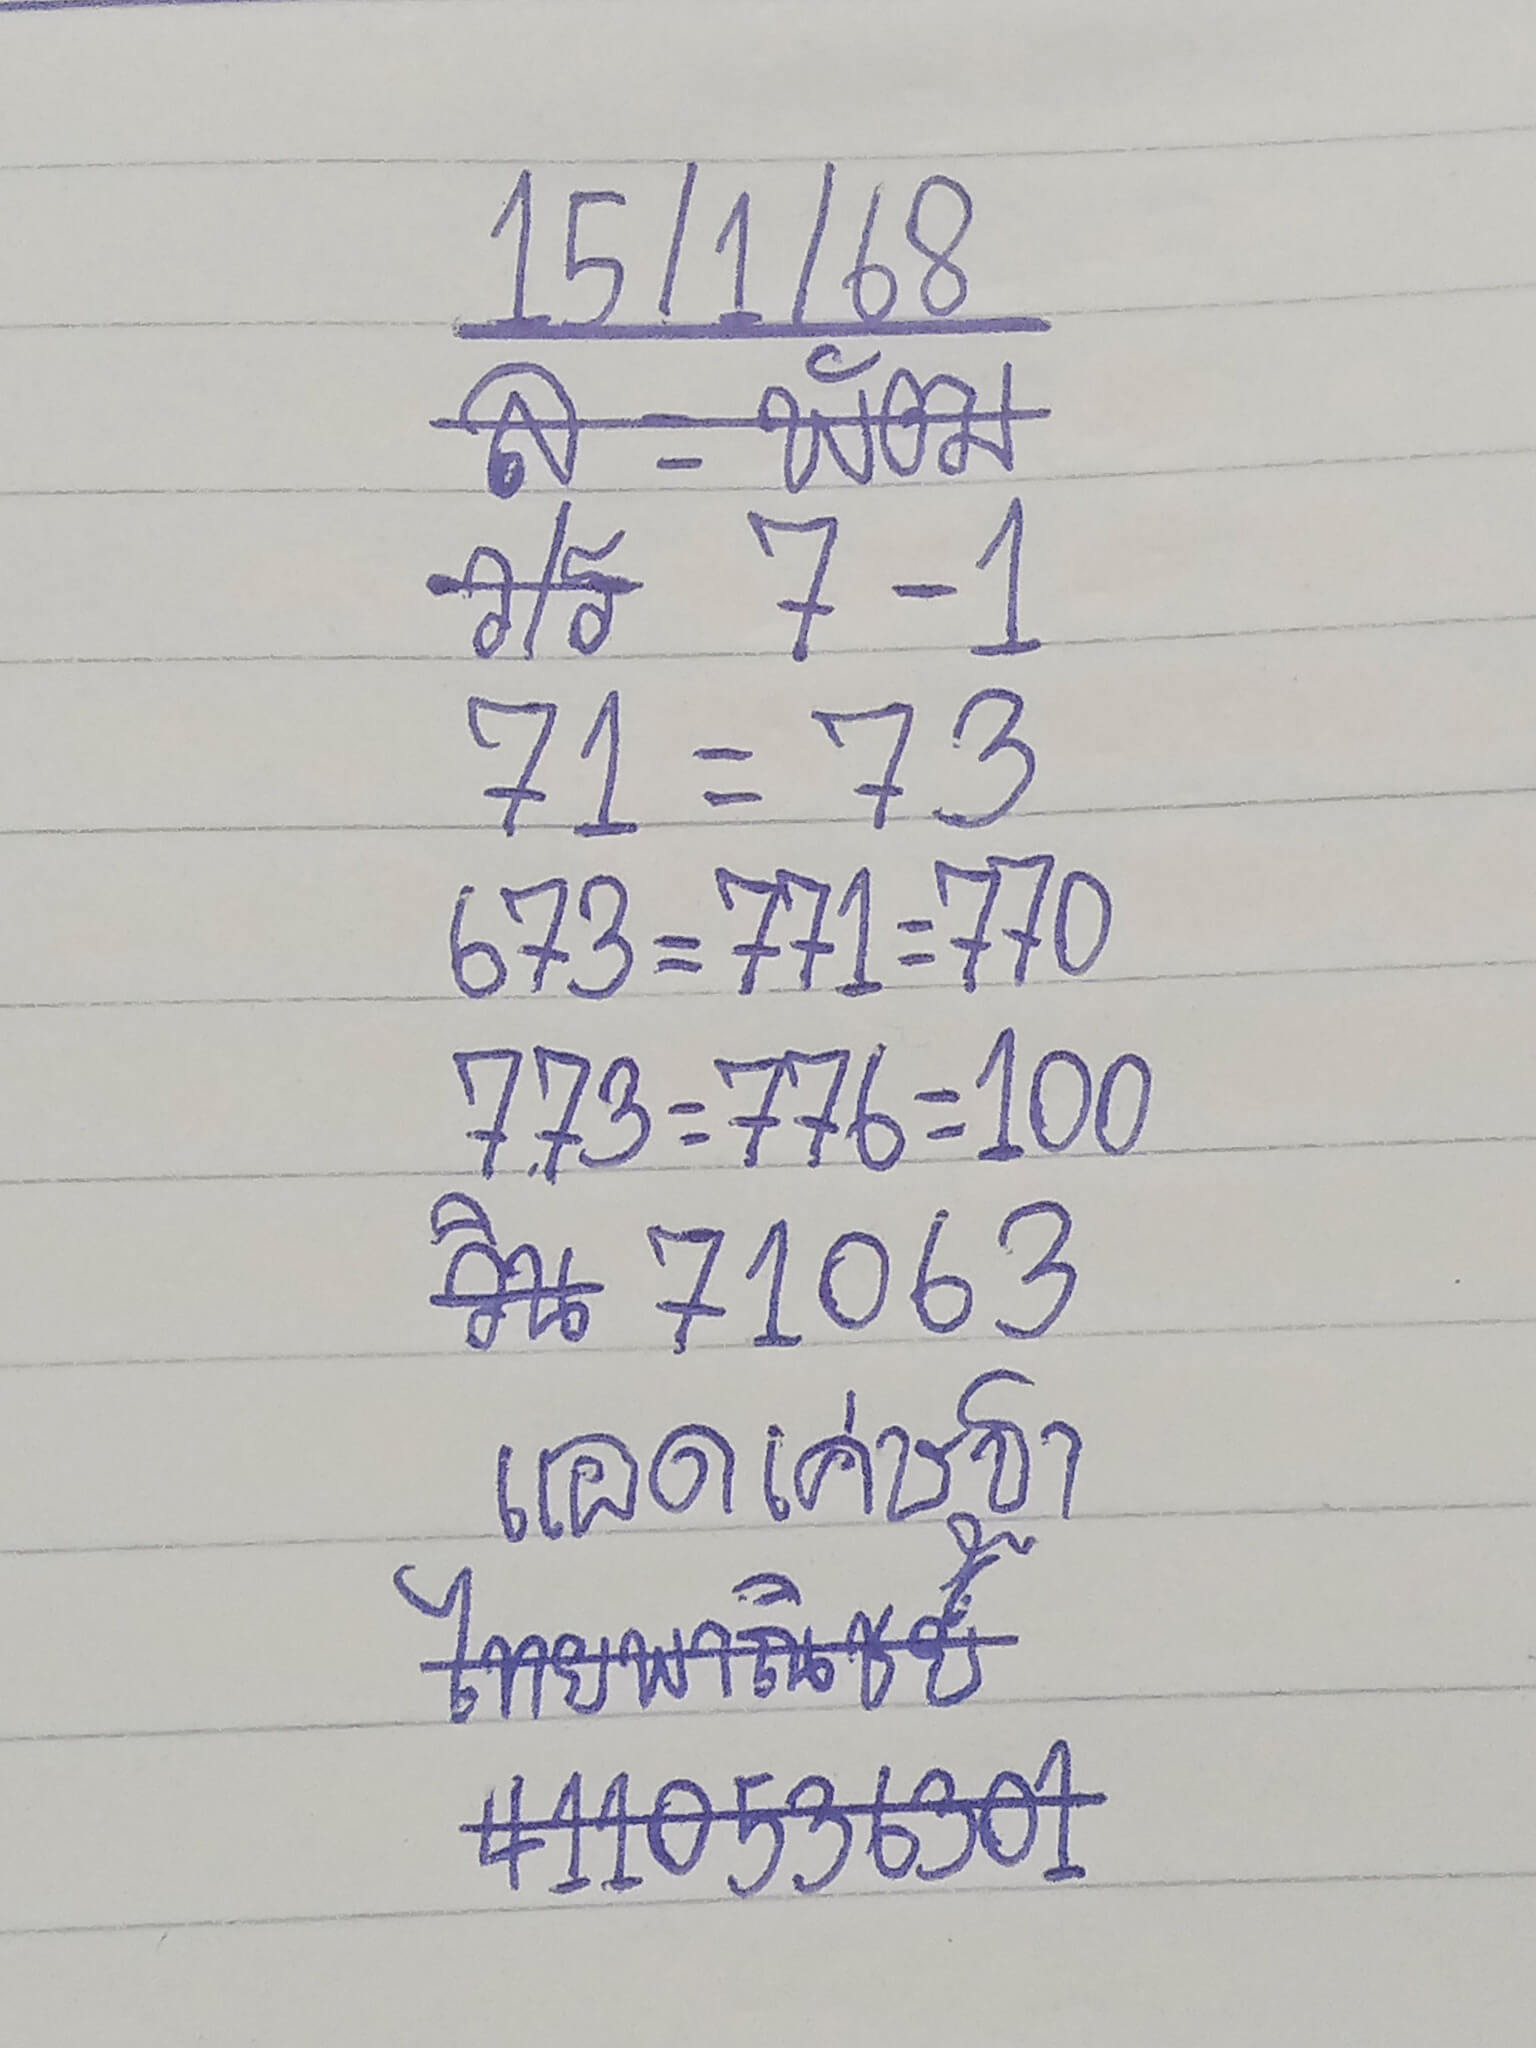 15/1/68
ล - พัฒม
ว/ธ 7-1
71 = 73
673=771=770
773=776=100
วิน 71063
แอดเค่ชจ้า
ไทยพาณิชย์
4110536301